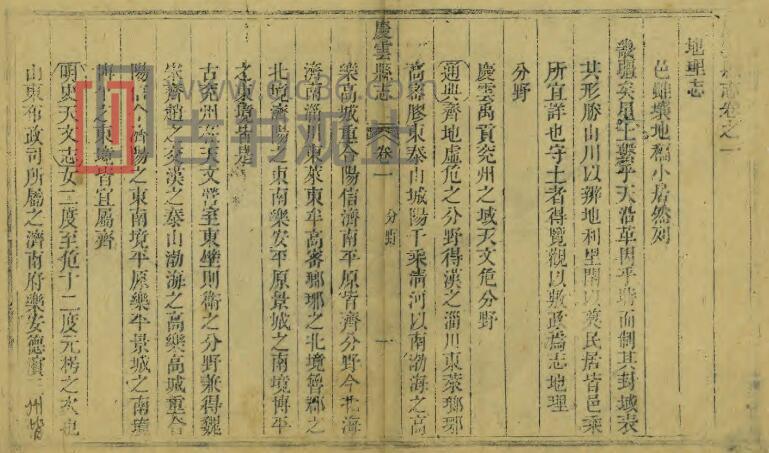 縣志卷之一
地理志
邑雖壤地褊小居然列
畿疆矣星土繫乎天沿革因乎時而制其封域表
其形勝山川以辨地利里閈以奠民居皆邑乘
所宜詳也守土者得覽觀以敷政焉志地理
分野
慶雲禹貢兖州之域天文危分野
通典齊地虛危之分野得漢之淄川東萊瑯琊
高密膠東泰山城陽千乘清河以南渤海之高
慶雲縣志 卷一 分野 一
樂高城重合陽信濟南平原皆齊分野今北海
濟南淄川東萊東牟高密瑯琊之北境魯郡之
北境濟陽之東南樂安平原景城之南境博平
之東境皆是
古兖州在天文營室東壁則衛之分野兼得魏
宋齊趙之交漢之泰山渤海之高樂高城重合
陽信今濟陽之東南境平原樂安景城之南境
博平之東境皆宜屬齊
明史天文志女二度至危十二度元枵之次也
山東布政司所屬之濟南府樂安德濱三州皆